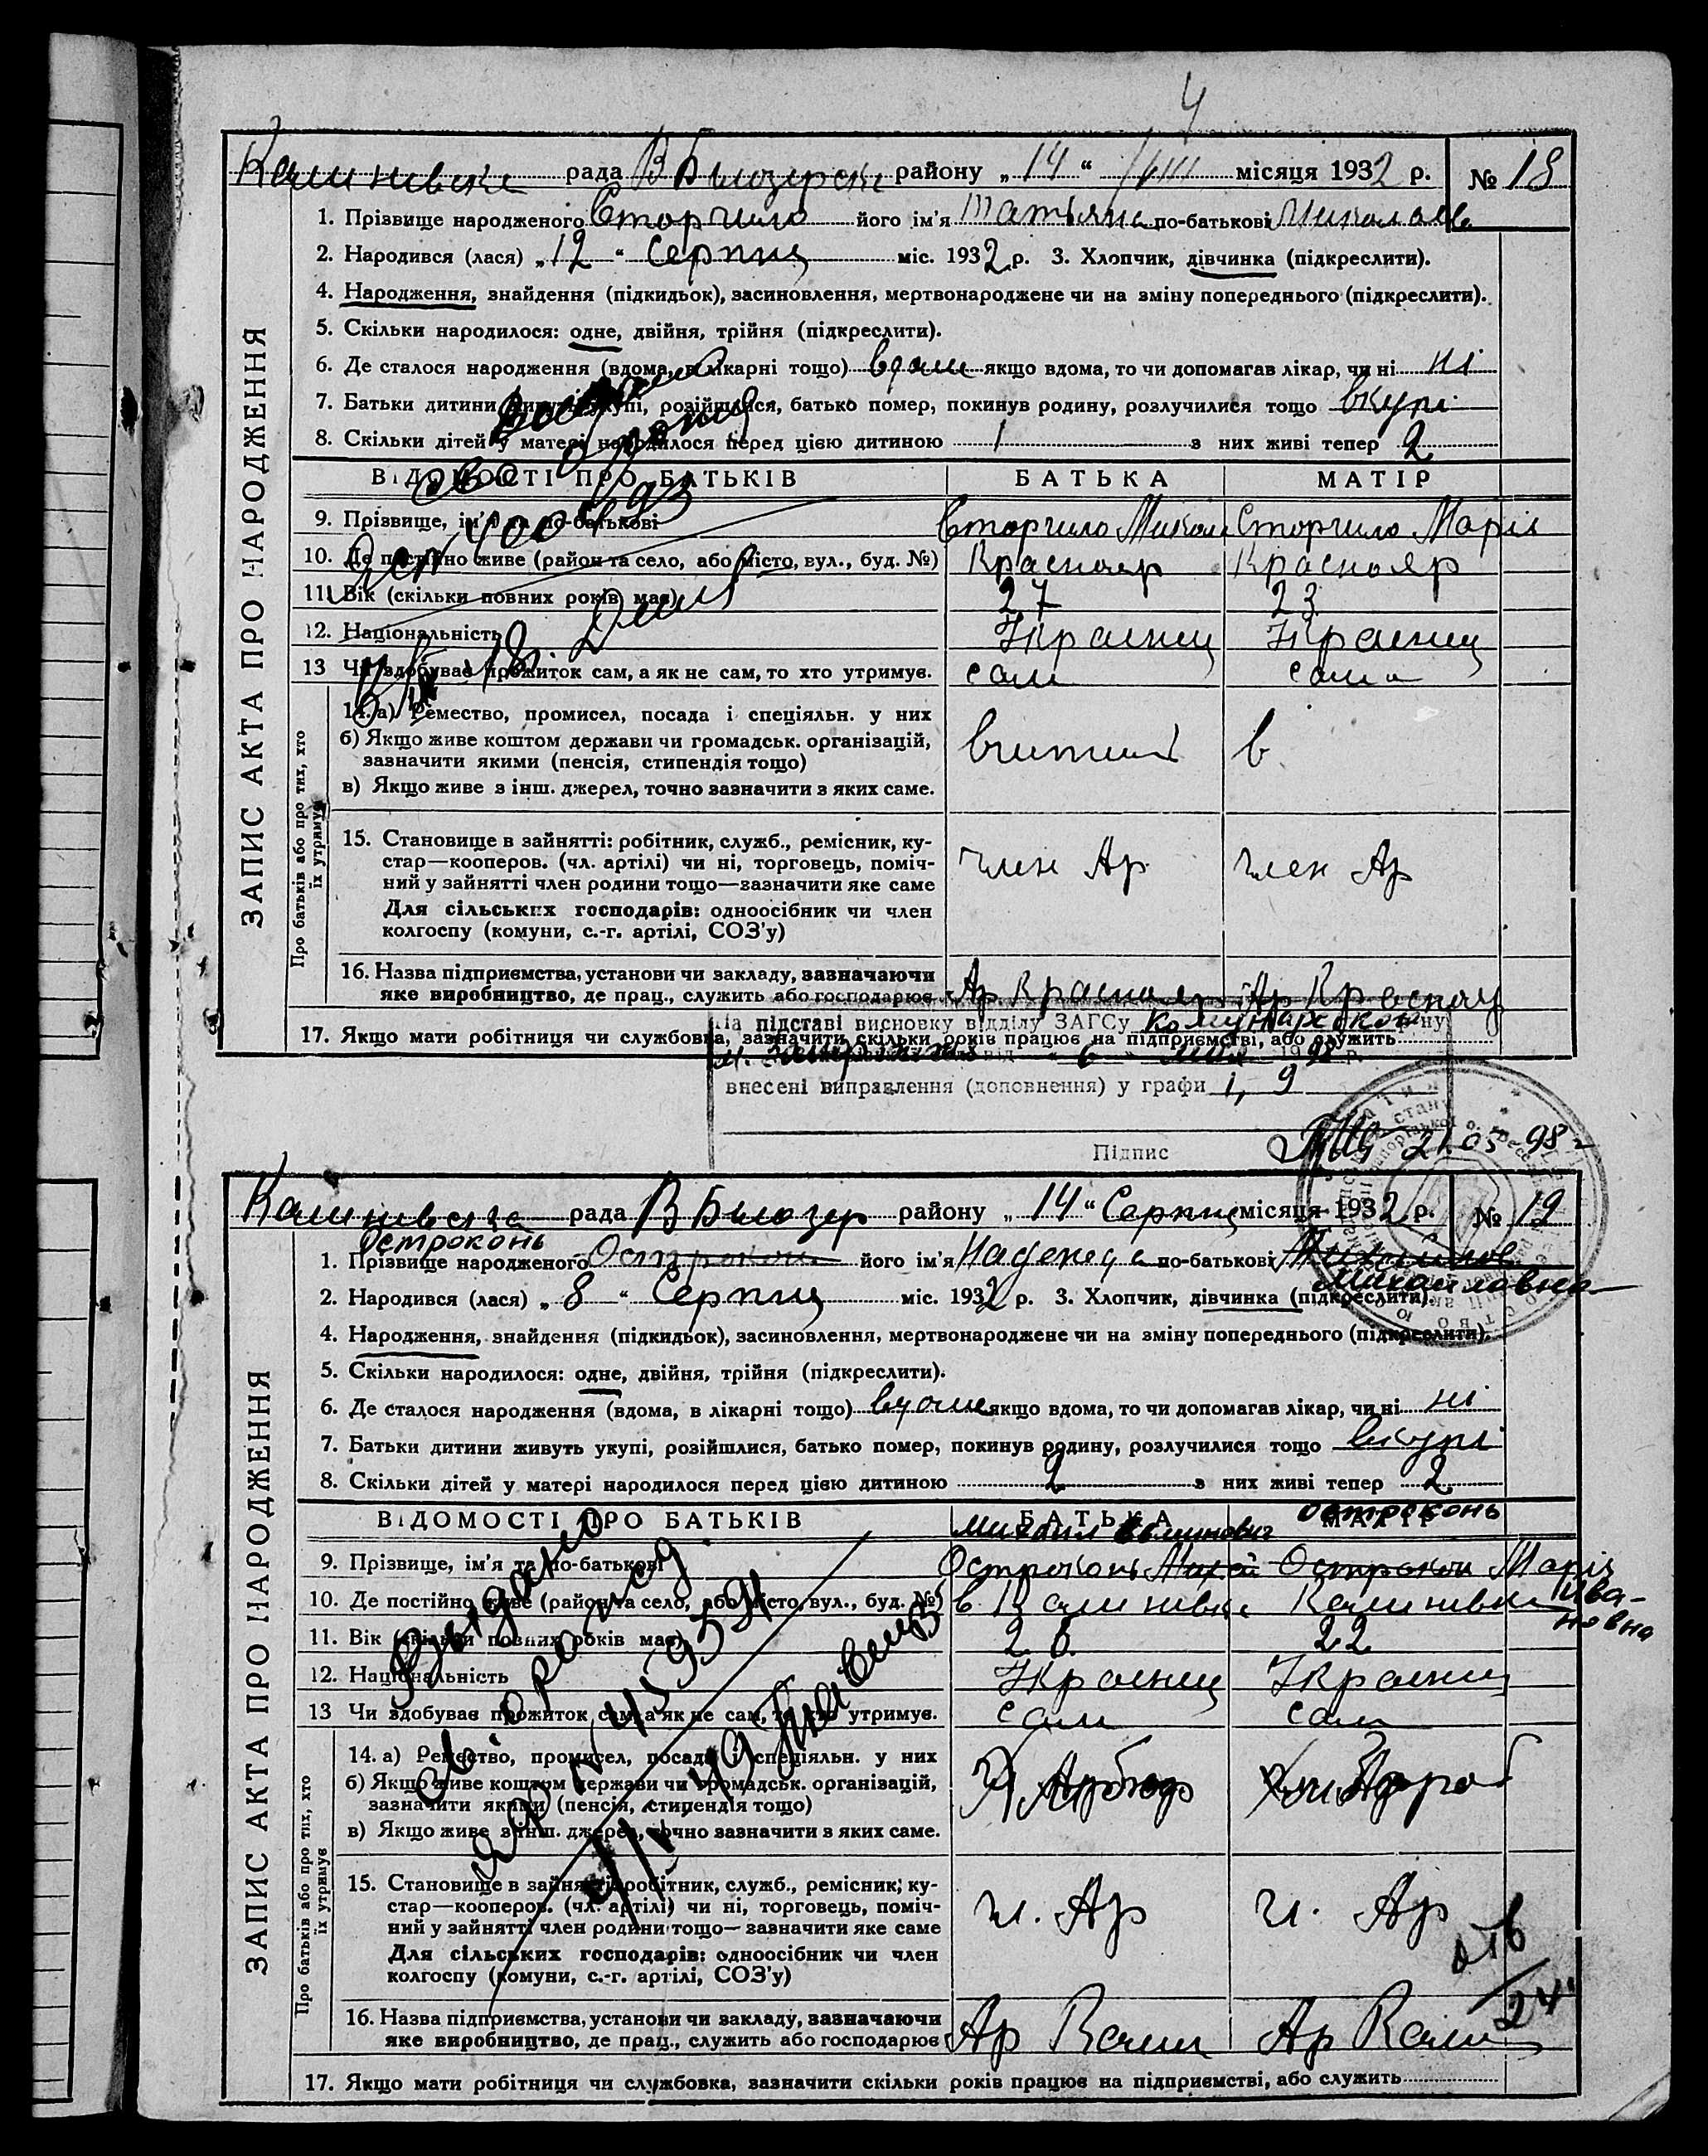 4
Калинівська рада В Білозерськ району „14“ VIII місяця 1932 р. № 18
1. Прізвище народженого Сторчило його ім'я Татьяна по-батькові Миколаєв
2. Народився (лася) „12“ Серпня міс. 1932 р. 3. Хлопчик, дівчинка (підкреслити).
4. Народження, знайдення (підкидьок), засиновлення, мертвонароджене чи на зміну попереднього (підкреслити).
5. Скільки народилося: одне, двійня, трійня (підкреслити).
6. Де сталося народження (вдома, в лікарні тощо) вдома якщо вдома, то чи допомагав лікар, чи ні ні
7. Батьки дитини живуть укупі, розійшлися, батько помер, покинув родину, розлучилися тощо вкупі
8. Скільки дітей у матері народилося перед цією дитиною 1 з них живі тепер 2
ВІДОМОСТІ ПРО БАТЬКІВ БАТЬКА МАТІР
9. Прізвище, ім'я та по-батькові Сторчило Микола Сторчило Марія
10. Де постійно живе (район та село, або місто, вул., буд. №) Краснояр Краснояр
11. Вік (скільки повних років має) 27 23
12. Національність Українец Українец
13 Чи здобуває прожиток сам, а як не сам, то хто утримує. сам сама
ЗАПИС АКТА ПРО НАРОДЖЕННЯ
Про батьків або про тих, хто їх утримує
14. а) Ремество, промисел, посада і спеціяльн. у них
б) Якщо живе коштом держави чи громадськ. організацій,
зазначити якими (пенсія, стипендія тощо)
в) Якщо живе з інш. джерел, точно зазначити з яких саме.
15. Становище в зайнятті: робітник, служб., ремісник, ку-
стар—кооперов. (чл. артілі) чи ні, торговець, поміч-
ний у зайнятті член родини тощо—зазначити яке саме
член Ар член Ар
Для сільських господарів: одноосібник чи член
колгоспу (комуни, с.-г. артілі, СОЗ'у)
16. Назва підприємства, установи чи закладу, зазначаючи
яке виробництво, де прац., служить або господарює Ар. Краснояр Ар Краснояр
17. Якщо мати робітниця чи службовка, зазначити скільки років працює на підприємстві, або служить
На підставі висновку відділу ЗАГСу Комунарського району
м. Запоріжжя від „6“ мая 1998 р.
внесені виправлення (доповнення) у графи 1, 9
Підпис 21.05 98
Калинівська рада В Білозер району „14“ Серпня місяця 1932 р. № 19
Остроконь
1. Прізвище народженого його ім'я Надежда по-батькові
Михайловна
2. Народився (лася) „8“ Серпня міс. 1932 р. 3. Хлопчик, дівчинка (підкреслити).
4. Народження, знайдення (підкидьок), засиновлення, мертвонароджене чи на зміну попереднього (підкреслити).
5. Скільки народилося: одне, двійня, трійня (підкреслити).
6. Де сталося народження (вдома, в лікарні тощо) вдома якщо вдома, то чи допомагав лікар, чи ні ні
7. Батьки дитини живуть укупі, розійшлися, батько помер, покинув родину, розлучилися тощо вкупі
8. Скільки дітей у матері народилося перед цією дитиною 2 з них живі тепер 2
ВІДОМОСТІ ПРО БАТЬКІВ БАТЬКА МАТІР
Михаил Остроконь
9. Прізвище, ім'я та по-батькові Остроконь Марія
Ива-
новна
10. Де постійно живе (район та село, або місто, вул., буд. №) в Калинівка Калинівка
11. Вік (скільки повних років має) 26 22
12. Національність Українец Українец
13 Чи здобуває прожиток сам, а як не сам, то хто утримує. сам сам
Выдано
ЗАПИС АКТА ПРО НАРОДЖЕННЯ
Про батьків або про тих, хто їх утримує
14. а) Ремество, промисел, посада і спеціяльн. у них
б) Якщо живе коштом держави чи громадськ. організацій,
зазначити якими (пенсія, стипендія тощо)
в) Якщо живе з інш. джерел, точно зазначити з яких саме.
15. Становище в зайнятті: робітник, служб., ремісник, ку-
стар—кооперов. (чл. артілі) чи ні, торговець, поміч-
ний у зайнятті член родини тощо—зазначити яке саме
ч. Ар ч. Ар
Для сільських господарів: одноосібник чи член
колгоспу (комуни, с.-г. артілі, СОЗ'у)
16. Назва підприємства, установи чи закладу, зазначаючи
яке виробництво, де прац., служить або господарює Ар Кали Ар Кали
17. Якщо мати робітниця чи службовка, зазначити скільки років працює на підприємстві, або служить